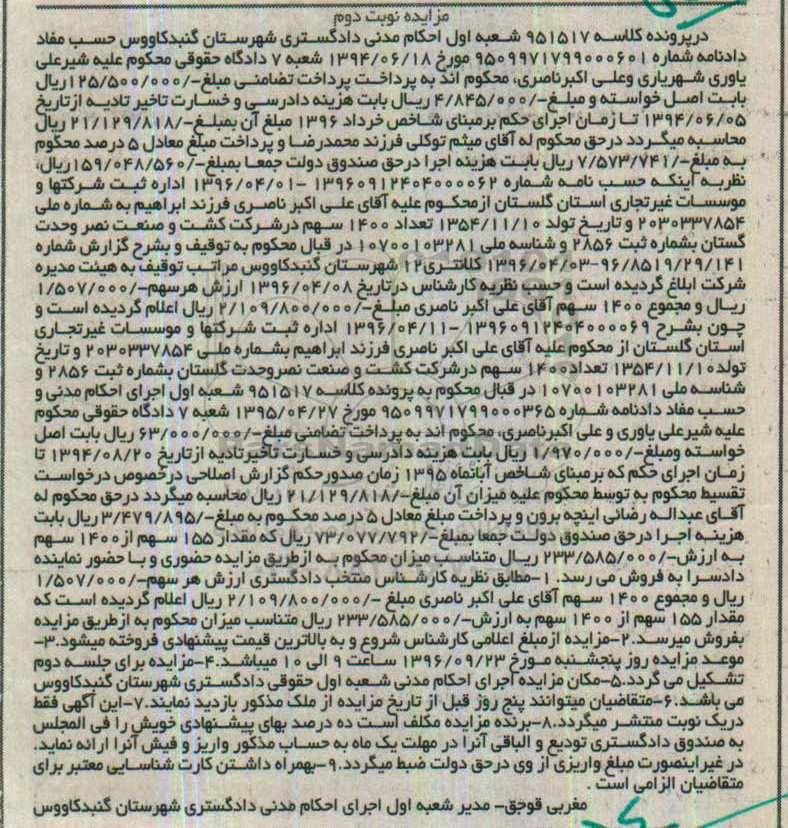 مزایده نوبت دوم
درپرونده کلاسه ۹۵۱۵۱۷ شعبه اول احکام مدنی دادگستری شهرستان گنبدکاووس حسب مفاد
دادنامه شماره ۹۵۰۹۹۷۱۷۹۹۰۰۰۶۰۱ مورخ ۱۳۹۴/۰۶/۱۸ شعبه ۷ دادگاه حقوقی محکوم علیه شیرعلی
یاوری شهریاری وعلی اکبرناصری، محکوم اند به پرداخت پرداخت تضامنی مبلغ-/۱۲۵/۵۰۰/۰۰۰ریال
بابت اصل خواسته و مبلغ-/۴/۸۴۵/۰۰۰ ریال بابت هزینه دادرسی و خسارت تاخیر تادیه ازتاریخ
۱۳۹۴/۰۶/۰۵ تا زمان اجرای حکم برمبنای شاخص خرداد ۱۳۹۶ مبلغ آن بمبلغ-/۲۱/۱۲۹/۸۱۸ ریال
محاسبه میگردد درحق محکوم له آقای میثم توکلی فرزند محمدرضا و پرداخت مبلغ معادل ۵ درصد محکوم
به مبلغ-/۷/۵۷۳/۷۴۱ ریال بابت هزینه اجرا درحق صندوق دولت جمعا بمبلغ-/۱۵۹/۰۴۸/۵۶۰ریال،
نظربه اینکه حسب نامه شماره ۱۳۹۶۰۹۱۲۴۰۴۰۰۰۰۶۲ -۱۳۹۶/۰۴/۰۱ اداره ثبت شرکتها و
موسسات غیرتجاری استان گلستان ازمحکوم علیه آقای علی اکبر ناصری فرزند ابراهیم به شماره ملی
۲۰۳۰۳۳۷۸۵۴ و تاریخ تولد ۱۳۵۴/۱۱/۱۰ تعداد ۱۴۰۰ سهم درشرکت کشت و صنعت نصر وحدت
گستان بشماره ثبت ۲۸۵۶ و شناسه ملی ۱۰۷۰۰۱۰۳۲۸۱ در قبال محکوم به توقیف و بشرح گزارش شماره
۹۶/۸۵۱۹/۲۹/۱۴۱-۱۳۹۶/۰۴/۰۳ کلانتری۱۲ شهرستان گنبدکاووس مراتب توقیف به هیئت مدیره
شرکت ابلاغ گردیده است و حسب نظریه کارشناس درتاریخ ۱۳۹۶/۰۴/۰۸ ارزش هرسهم-/۱/۵۰۷/۰۰۰
ریال و مجموع ۱۴۰۰ سهم آقای علی اکبر ناصری مبلغ-/۲/۱۰۹/۸۰۰/۰۰۰ ریال اعلام گردیده است و
چون بشرح ۱۳۹۶۰۹۱۲۴۰۴۰۰۰۰۶۹ -۱۳۹۶/۰۴/۱۱ اداره ثبت شرکتها و موسسات غیرتجاری
استان گلستان از محکوم علیه آقای علی اکبر ناصری فرزند ابراهیم بشماره ملی ۲۰۳۰۳۳۷۸۵۴ و تاریخ
تولد۱۳۵۴/۱۱/۱۰ تعداد۱۴۰۰ سهم درشرکت کشت و صنعت نصروحدت گلستان بشماره ثبت ۲۸۵۶ و
شناسه ملی ۱۰۷۰۰۱۰۳۲۸۱ در قبال محکوم به پرونده کلاسه ۹۵۱۵۱۷ شعبه اول اجرای احکام مدنی و
حسب مفاد دادنامه شماره ۹۵۰۹۹۷۱۷۹۹۰۰۰۳۶۵ مورخ ۱۳۹۵/۰۴/۲۷ شعبه ۷ دادگاه حقوقی محکوم
علیه شیرعلی یاوری و علی اکبرناصری، محکوم اند به پرداخت تضامنی مبلغ-/۶۳/۰۰۰/۰۰۰ ریال بابت اصل
خواسته ومبلغ-/۱/۹۷۰/۰۰۰ ریال بابت هزینه دادرسی و خسارت تأخیرتادیه ازتاریخ ۱۳۹۴/۰۸/۲۰ تا
زمان اجرای حکم که برمبنای شاخص آبانماه ۱۳۹۵ زمان صدورحکم گزارش اصلاحی درخصوص درخواست
تقسیط محکوم به توسط محکوم علیه میزان آن مبلغ-/۲۱/۱۲۹/۸۱۸ ریال محاسبه میگردد درحق محکوم له
آقای عبداله رضائی اینچه برون و پرداخت مبلغ معادل ۵ درصد محکوم به مبلغ-/۳/۴۷۹/۸۹۵ ریال بابت
هزینه اجرا درحق صندوق دولت جمعا بمبلغ-/۷۳/۰۷۷/۷۹۲ ریال که مقدار ۱۵۵ سهم از ۱۴۰۰ سهم
به ارزش-/۲۳۳/۵۸۵/۰۰۰ ریال متناسب میزان محکوم به ازطریق مزایده حضوری و با حضور نماینده
دادسرا به فروش می رسد. ۱-مطابق نظریه کارشناس منتخب دادگستری ارزش هر سهم-/۱/۵۰۷/۰۰۰
ریال و مجموع ۱۴۰۰ سهم آقای علی اکبر ناصری مبلغ -/۲/۱۰۹/۸۰۰/۰۰۰ ریال اعلام گردیده است که
مقدار ۱۵۵ سهم از ۱۴۰۰ سهم به ارزش-/۲۳۳/۵۸۵/۰۰۰ ریال متناسب میزان محکوم به ازطریق مزایده
بفروش میرسد.۲-مزایده ازمبلغ اعلامی کارشناس شروع و به بالاترین قیمت پیشنهادی فروخته میشود.۳-
موعد مزایده روز پنجشنبه مورخ ۱۳۹۶/۰۹/۲۳ ساعت ۹ الی ۱۰ میباشد.۴-مزایده برای جلسه دوم
تشکیل می گردد.۵-مکان مزایده اجرای احکام مدنی شعبه اول حقوقی دادگستری شهرستان گنبدکاووس
می باشد.۶-متقاضیان میتوانند پنج روز قبل از تاریخ مزایده از ملک مذکور بازدید نمایند.۷-این آگهی فقط
دریک نوبت منتشر میگردد.۸-برنده مزایده مکلف است ده درصد بهای پیشنهادی خویش را فی المجلس
به صندوق دادگستری تودیع و الباقی آنرا در مهلت یک ماه به حساب مذکور واریز و فیش آنرا ارائه نماید.
در غیراینصورت مبلغ واریزی از وی درحق دولت ضبط میگردد.۹-بهمراه داشتن کارت شناسایی معتبر برای
متقاضیان الزامی است .
مغربی قوجق- مدیر شعبه اول اجرای احکام مدنی دادگستری شهرستان گنبدکاووس